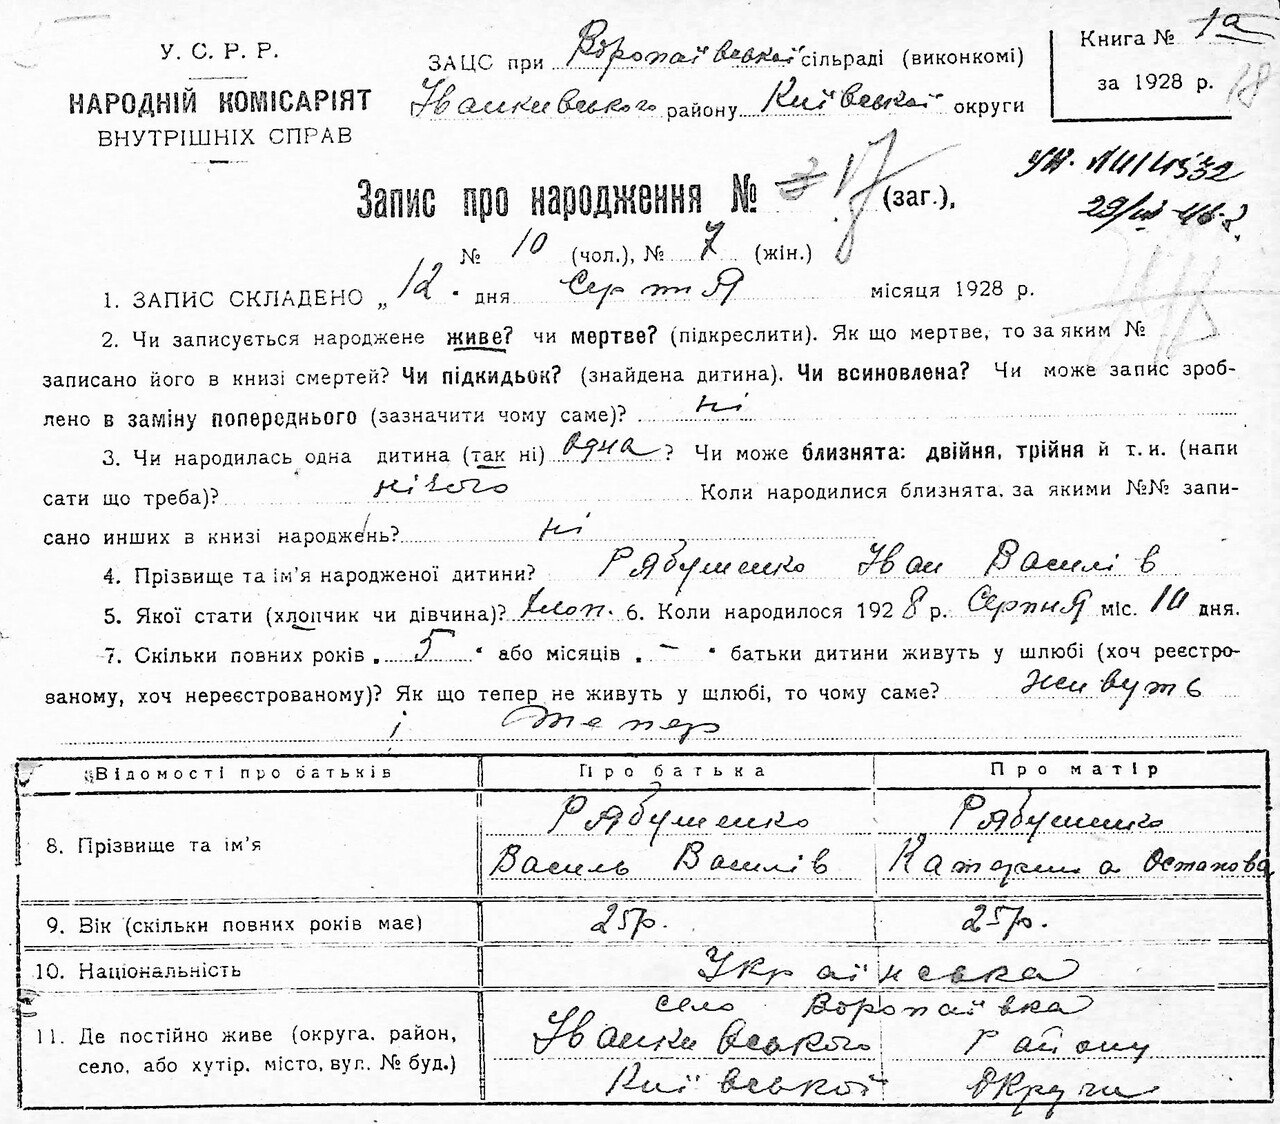 У. С. Р. Р.
НАРОДНІЙ КОМІСАРІЯТ
ВНУТРІШНІХ СПРАВ
ЗАЦС при Воропаївської сільраді (виконкомі)
Іванківського району Київської округи
Книга № 1а
за 1928 р.
18
Запис про народження № 17 (заг.),
29/
№ 10 (чол.), № 7 (жін.)
1. ЗАПИС СКЛАДЕНО „12" дня Серпня місяця 1928 р.
2. Чи записується народжене живе? чи мертве? (підкреслити). Як що мертве, то за яким №
записано його в книзі смертей? Чи підкидьок? (знайдена дитина). Чи всиновлена? Чи може запис зроб-
лено в заміну попереднього (зазначити чому саме)? ні
3. Чи народилась одна дитина (так ні) одна? Чи може близнята: двійня, трійня й т. и. (напи
сати що треба)? нічого Коли народилися близнята, за якими №№ запи-
сано инших в книзі народжень? ні
4. Прізвище та ім'я народженої дитини? Рябушенко Іван Василів
5. Якої стати (хлопчик чи дівчина)? Хлоп. 6. Коли народилося 1928 р. Серпня міс. 10 дня.
7. Скільки повних років „5" або місяців „-" батьки дитини живуть у шлюбі (хоч реєстро-
ваному, хоч нереєстрованому)? Як що тепер не живуть у шлюбі, то чому саме? живуть
і тепер
Відомості про батьків Про батька Про матір
8. Прізвище та ім'я Рябушенко Василь Василів Рябушенко Катерина Остапова
9. Вік (скільки повних років має) 25р. 25р.
10. Національність Українська
11. Де постійно живе (округа, район,
село, або хутір, місто, вул., № буд.)
село Воропаївка
Іванківського Району
Київської Округи